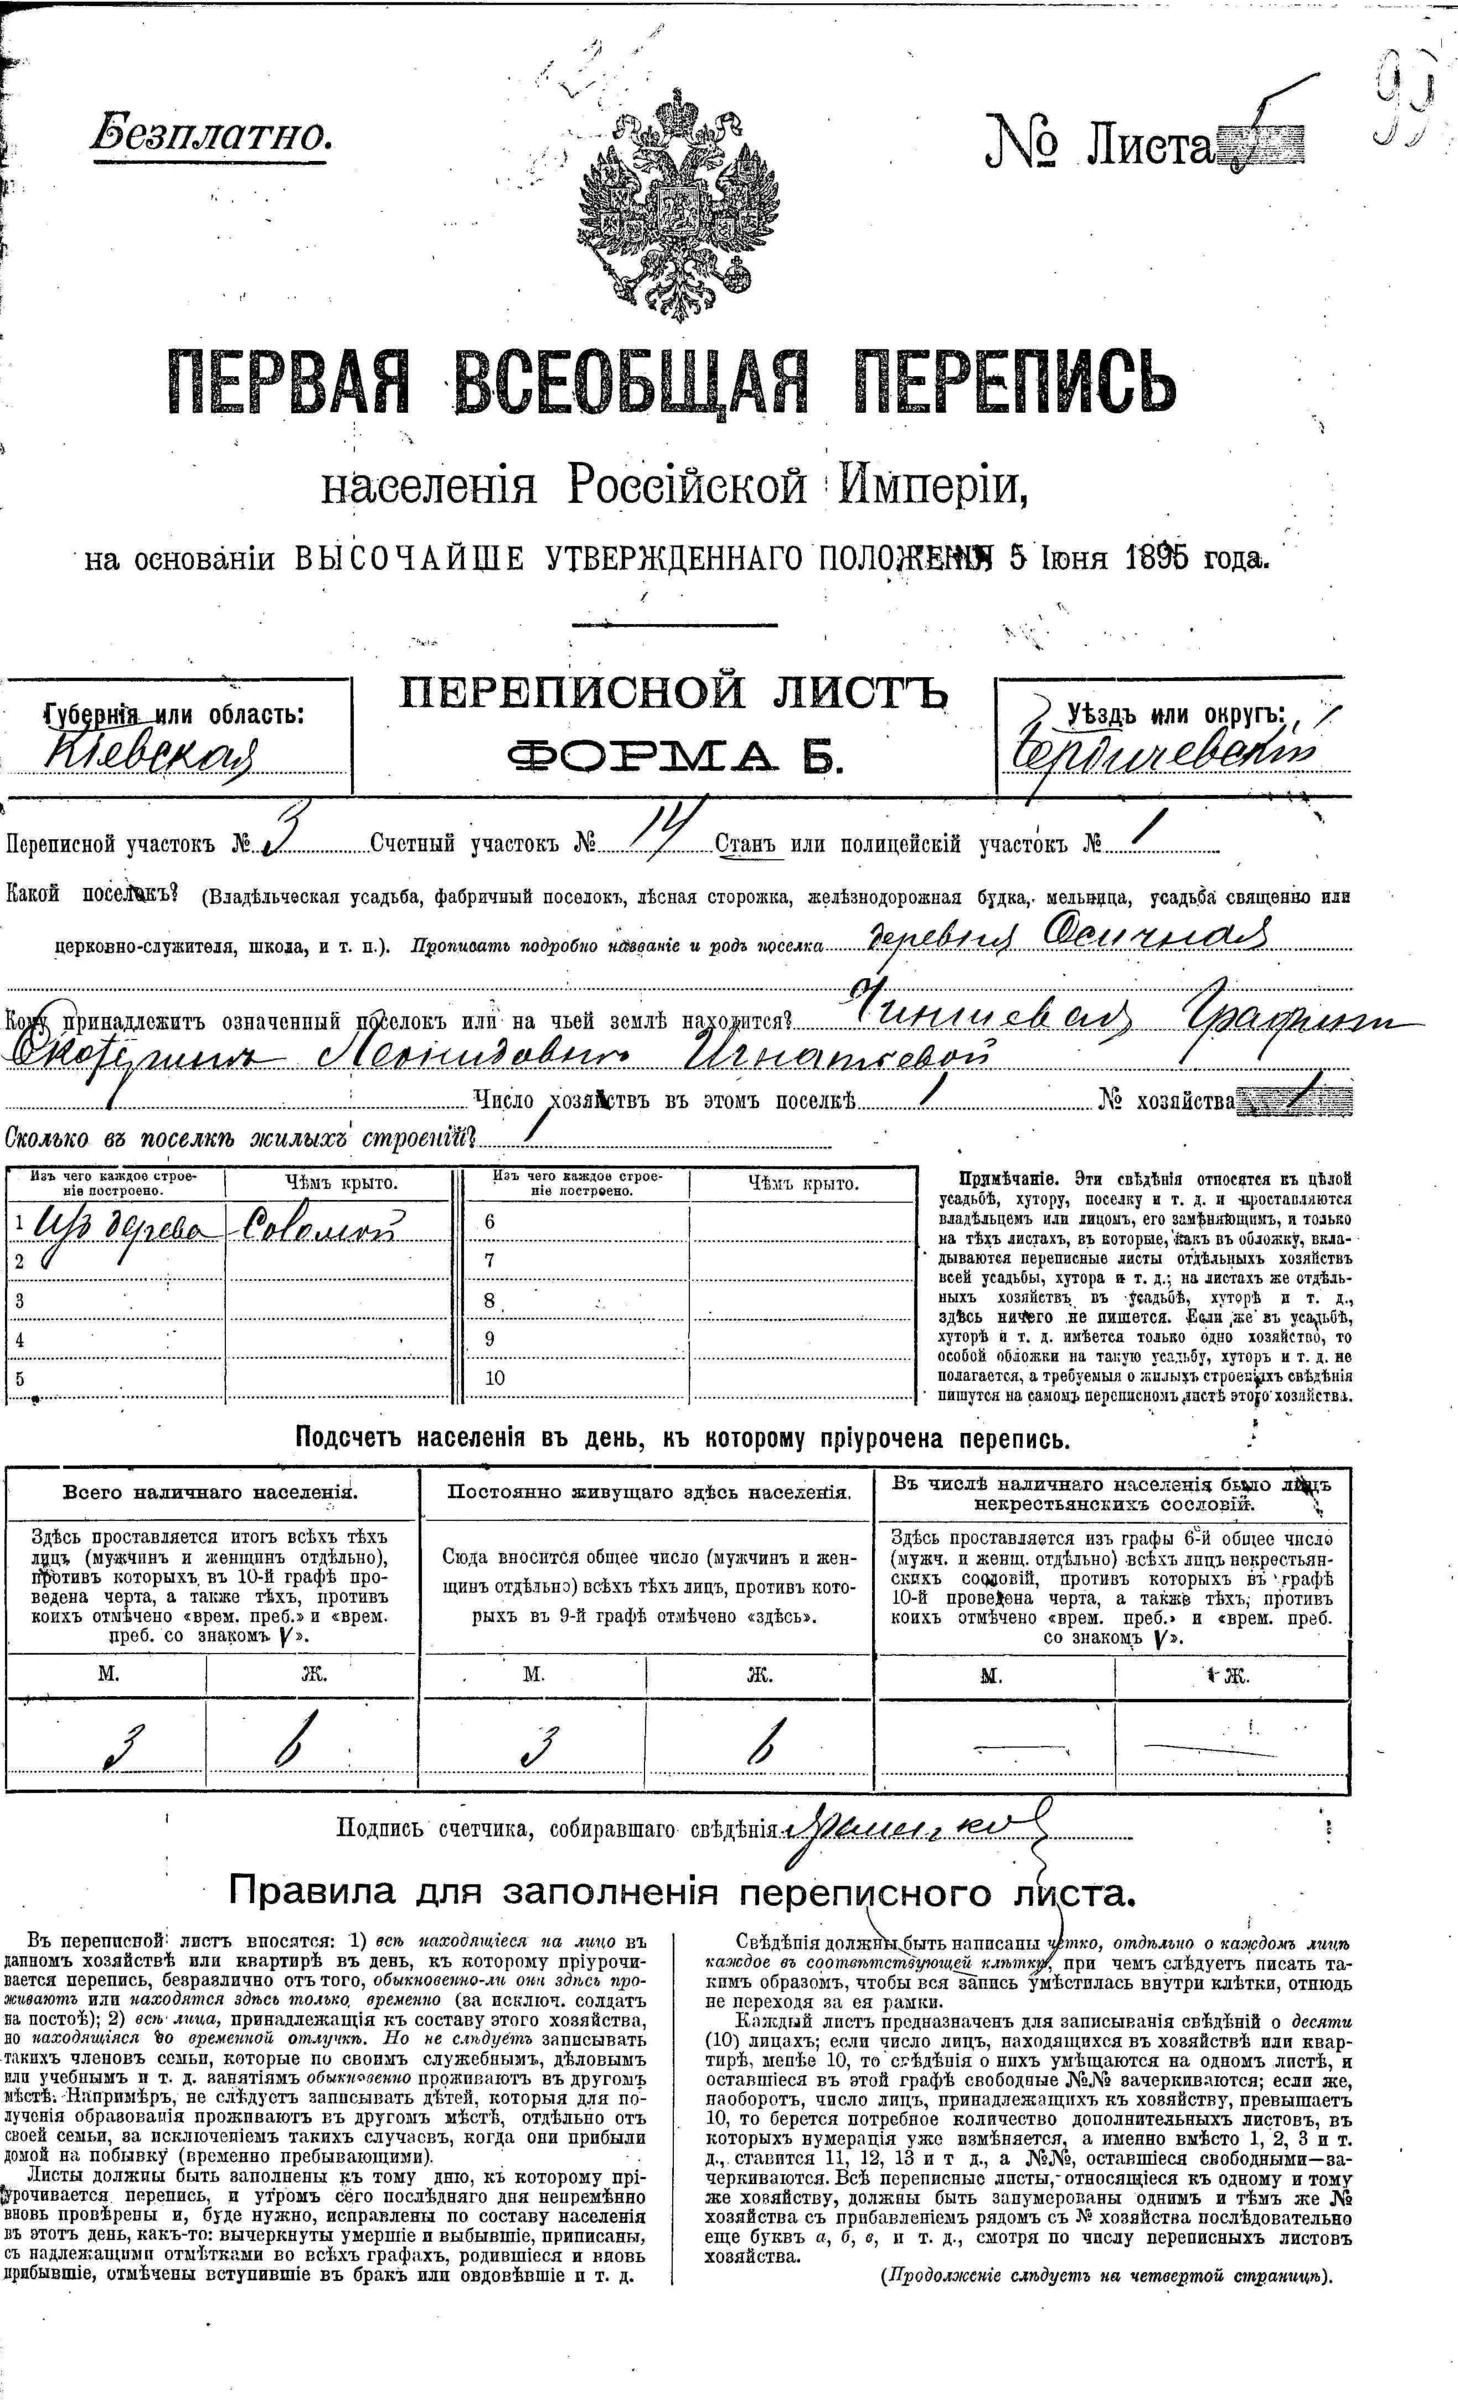 99
Безплатно.
№ Листа 5
ПЕРВАЯ ВСЕОБЩАЯ ПЕРЕПИСЬ
населенія Россійской Имперіи,
на основаніи ВЫСОЧАЙШЕ УТВЕРЖДЕННАГО ПОЛОЖЕНІЯ 5 Іюня 1895 года.
ПЕРЕПИСНОЙ ЛИСТЪ
ФОРМА Б.
Губернія или область:
Кіевская
Уѣздъ или округъ:
Бердичевскій
Переписной участокъ № 3 Счетный участокъ № 14 Станъ или полицейскій участокъ № 1
Какой поселокъ? (Владѣльческая усадьба, фабричный поселокъ, лѣсная сторожка, желѣзнодорожная будка, мельница, усадьба священно или
церковно-служителя, школа, и т. п.). Прописать подробно названіе и родъ поселка деревня Осичная
Кому принадлежитъ означенный поселокъ или на чьей землѣ находится? Чиншевая Графини
Екатерины Леонидовны Игнатьевой
Число хозяйствъ въ этомъ поселкѣ 1 № хозяйства 1
Сколько въ поселкѣ жилыхъ строеній? 1
Изъ чего каждое строе-
ніе построено.
Чѣмъ крыто.
Изъ чего каждое строе-
ніе построено.
Чѣмъ крыто.
1 Изъ дерева Соломой 6
2 7
3 8
4 9
5 10
Примѣчаніе. Эти свѣдѣнія относятся къ цѣлой
усадьбѣ, хутору, поселку и т. д. и проставляются
владѣльцемъ или лицомъ, его замѣняющимъ, и только
на тѣхъ листахъ, въ которые, какъ въ обложку, вкла-
дываются переписные листы отдѣльныхъ хозяйствъ
всей усадьбы, хутора и т. д.; на листахъ же отдѣль-
ныхъ хозяйствъ въ усадьбѣ, хуторѣ и т. д.,
здѣсь ничего не пишется. Если же въ усадьбѣ,
хуторѣ и т. д. имѣется только одно хозяйство, то
особой обложки на такую усадьбу, хуторъ и т. д. не
полагается, а требуемыя о жилыхъ строеніяхъ свѣдѣнія
пишутся на самомъ переписномъ листѣ этого хозяйства.
Подсчетъ населенія въ день, къ которому пріурочена перепись.
Всего наличнаго населенія.
Здѣсь проставляется итогъ всѣхъ тѣхъ
лицъ (мужчинъ и женщинъ отдѣльно),
противъ которыхъ въ 10-й графѣ про-
ведена черта, а также тѣхъ, противъ
коихъ отмѣчено «врем. преб.» и «врем.
преб. со знакомъ V».
Постоянно живущаго здѣсь населенія.
Сюда вносится общее число (мужчинъ и жен-
щинъ отдѣльно) всѣхъ тѣхъ лицъ, противъ кото-
рыхъ въ 9-й графѣ отмѣчено «здѣсь».
Въ числѣ наличнаго населенія было лицъ
некрестьянскихъ сословій.
Здѣсь проставляется изъ графы 6-й общее число
(мужч. и женщ. отдѣльно) всѣхъ лицъ некрестьян-
скихъ сословій, противъ которыхъ въ графѣ
10-й проведена черта, а также тѣхъ, противъ
коихъ отмѣчено «врем. преб.» и «врем. преб.
со знакомъ V».
М. Ж. М. Ж. М. Ж.
3 6 3 6 — —
Подпись счетчика, собиравшаго свѣдѣнія
Правила для заполненія переписного листа.
Въ переписной листъ вносятся: 1) всѣ находящіеся на лицо въ
данномъ хозяйствѣ или квартирѣ въ день, къ которому пріурочи-
вается перепись, безразлично отъ того, обыкновенно-ли они здѣсь про-
живаютъ или находятся здѣсь только временно (за исключ. солдатъ
на постоѣ); 2) всѣ лица, принадлежащія къ составу этого хозяйства,
но находящіяся во временной отлучкѣ. Но не слѣдуетъ записывать
такихъ членовъ семьи, которые по своимъ служебнымъ, дѣловымъ
или учебнымъ и т. д. занятіямъ обыкновенно проживаютъ въ другомъ
мѣстѣ. Напримѣръ, не слѣдуетъ записывать дѣтей, которыя для по-
лученія образованія проживаютъ въ другомъ мѣстѣ, отдѣльно отъ
своей семьи, за исключеніемъ такихъ случаевъ, когда они прибыли
домой на побывку (временно пребывающими).
Листы должны быть заполнены къ тому дню, къ которому прі-
урочивается перепись, и утромъ сего послѣдняго дня непремѣнно
вновь провѣрены и, буде нужно, исправлены по составу населенія
въ этотъ день, какъ-то: вычеркнуты умершіе и выбывшіе, приписаны,
съ надлежащими отмѣтками во всѣхъ графахъ, родившіеся и вновь
прибывшіе, отмѣчены вступившіе въ бракъ или овдовѣвшіе и т. д.
Свѣдѣнія должны быть написаны четко, отдѣльно о каждомъ лицѣ
каждое въ соотвѣтствующей клѣткѣ, при чемъ слѣдуетъ писать та-
кимъ образомъ, чтобы вся запись умѣстилась внутри клѣтки, отнюдь
не переходя за ея рамки.
Каждый листъ предназначенъ для записыванія свѣдѣній о десяти
(10) лицахъ; если число лицъ, находящихся въ хозяйствѣ или квар-
тирѣ, менѣе 10, то свѣдѣнія о нихъ умѣщаются на одномъ листѣ, и
оставшіеся въ этой графѣ свободные №№ зачеркиваются; если же,
наоборотъ, число лицъ, принадлежащихъ къ хозяйству, превышаетъ
10, то берется потребное количество дополнительныхъ листовъ, въ
которыхъ нумерація уже измѣняется, а именно вмѣсто 1, 2, 3 и т.
д., ставится 11, 12, 13 и т д., а №№, оставшіеся свободными—за-
черкиваются. Всѣ переписные листы, относящіеся къ одному и тому
же хозяйству, должны быть занумерованы однимъ и тѣмъ же №
хозяйства съ прибавленіемъ рядомъ съ № хозяйства послѣдовательно
еще буквъ а, б, в, и т. д., смотря по числу переписныхъ листовъ
хозяйства.
(Продолженіе слѣдуетъ на четвертой страницѣ).